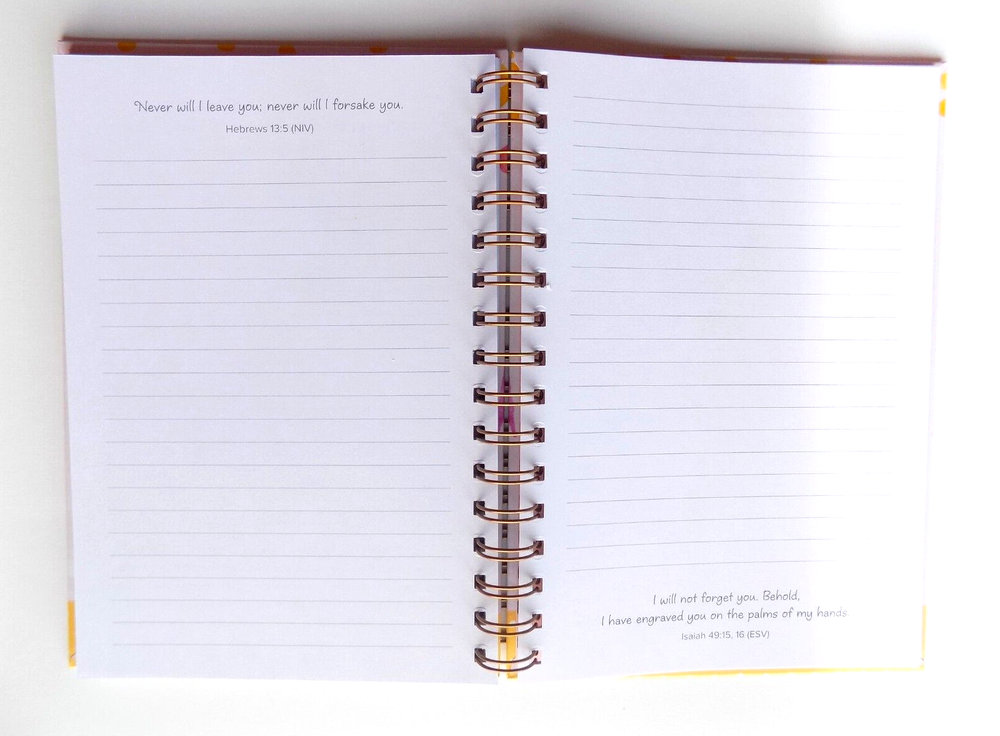 Never will I leave you; never will I forsake you.
Hebrews 13:5 (NIV)
I will not forget you. Behold,
I have engraved you on the palms of my hands.
Isaiah 49:15, 16 (ESV)